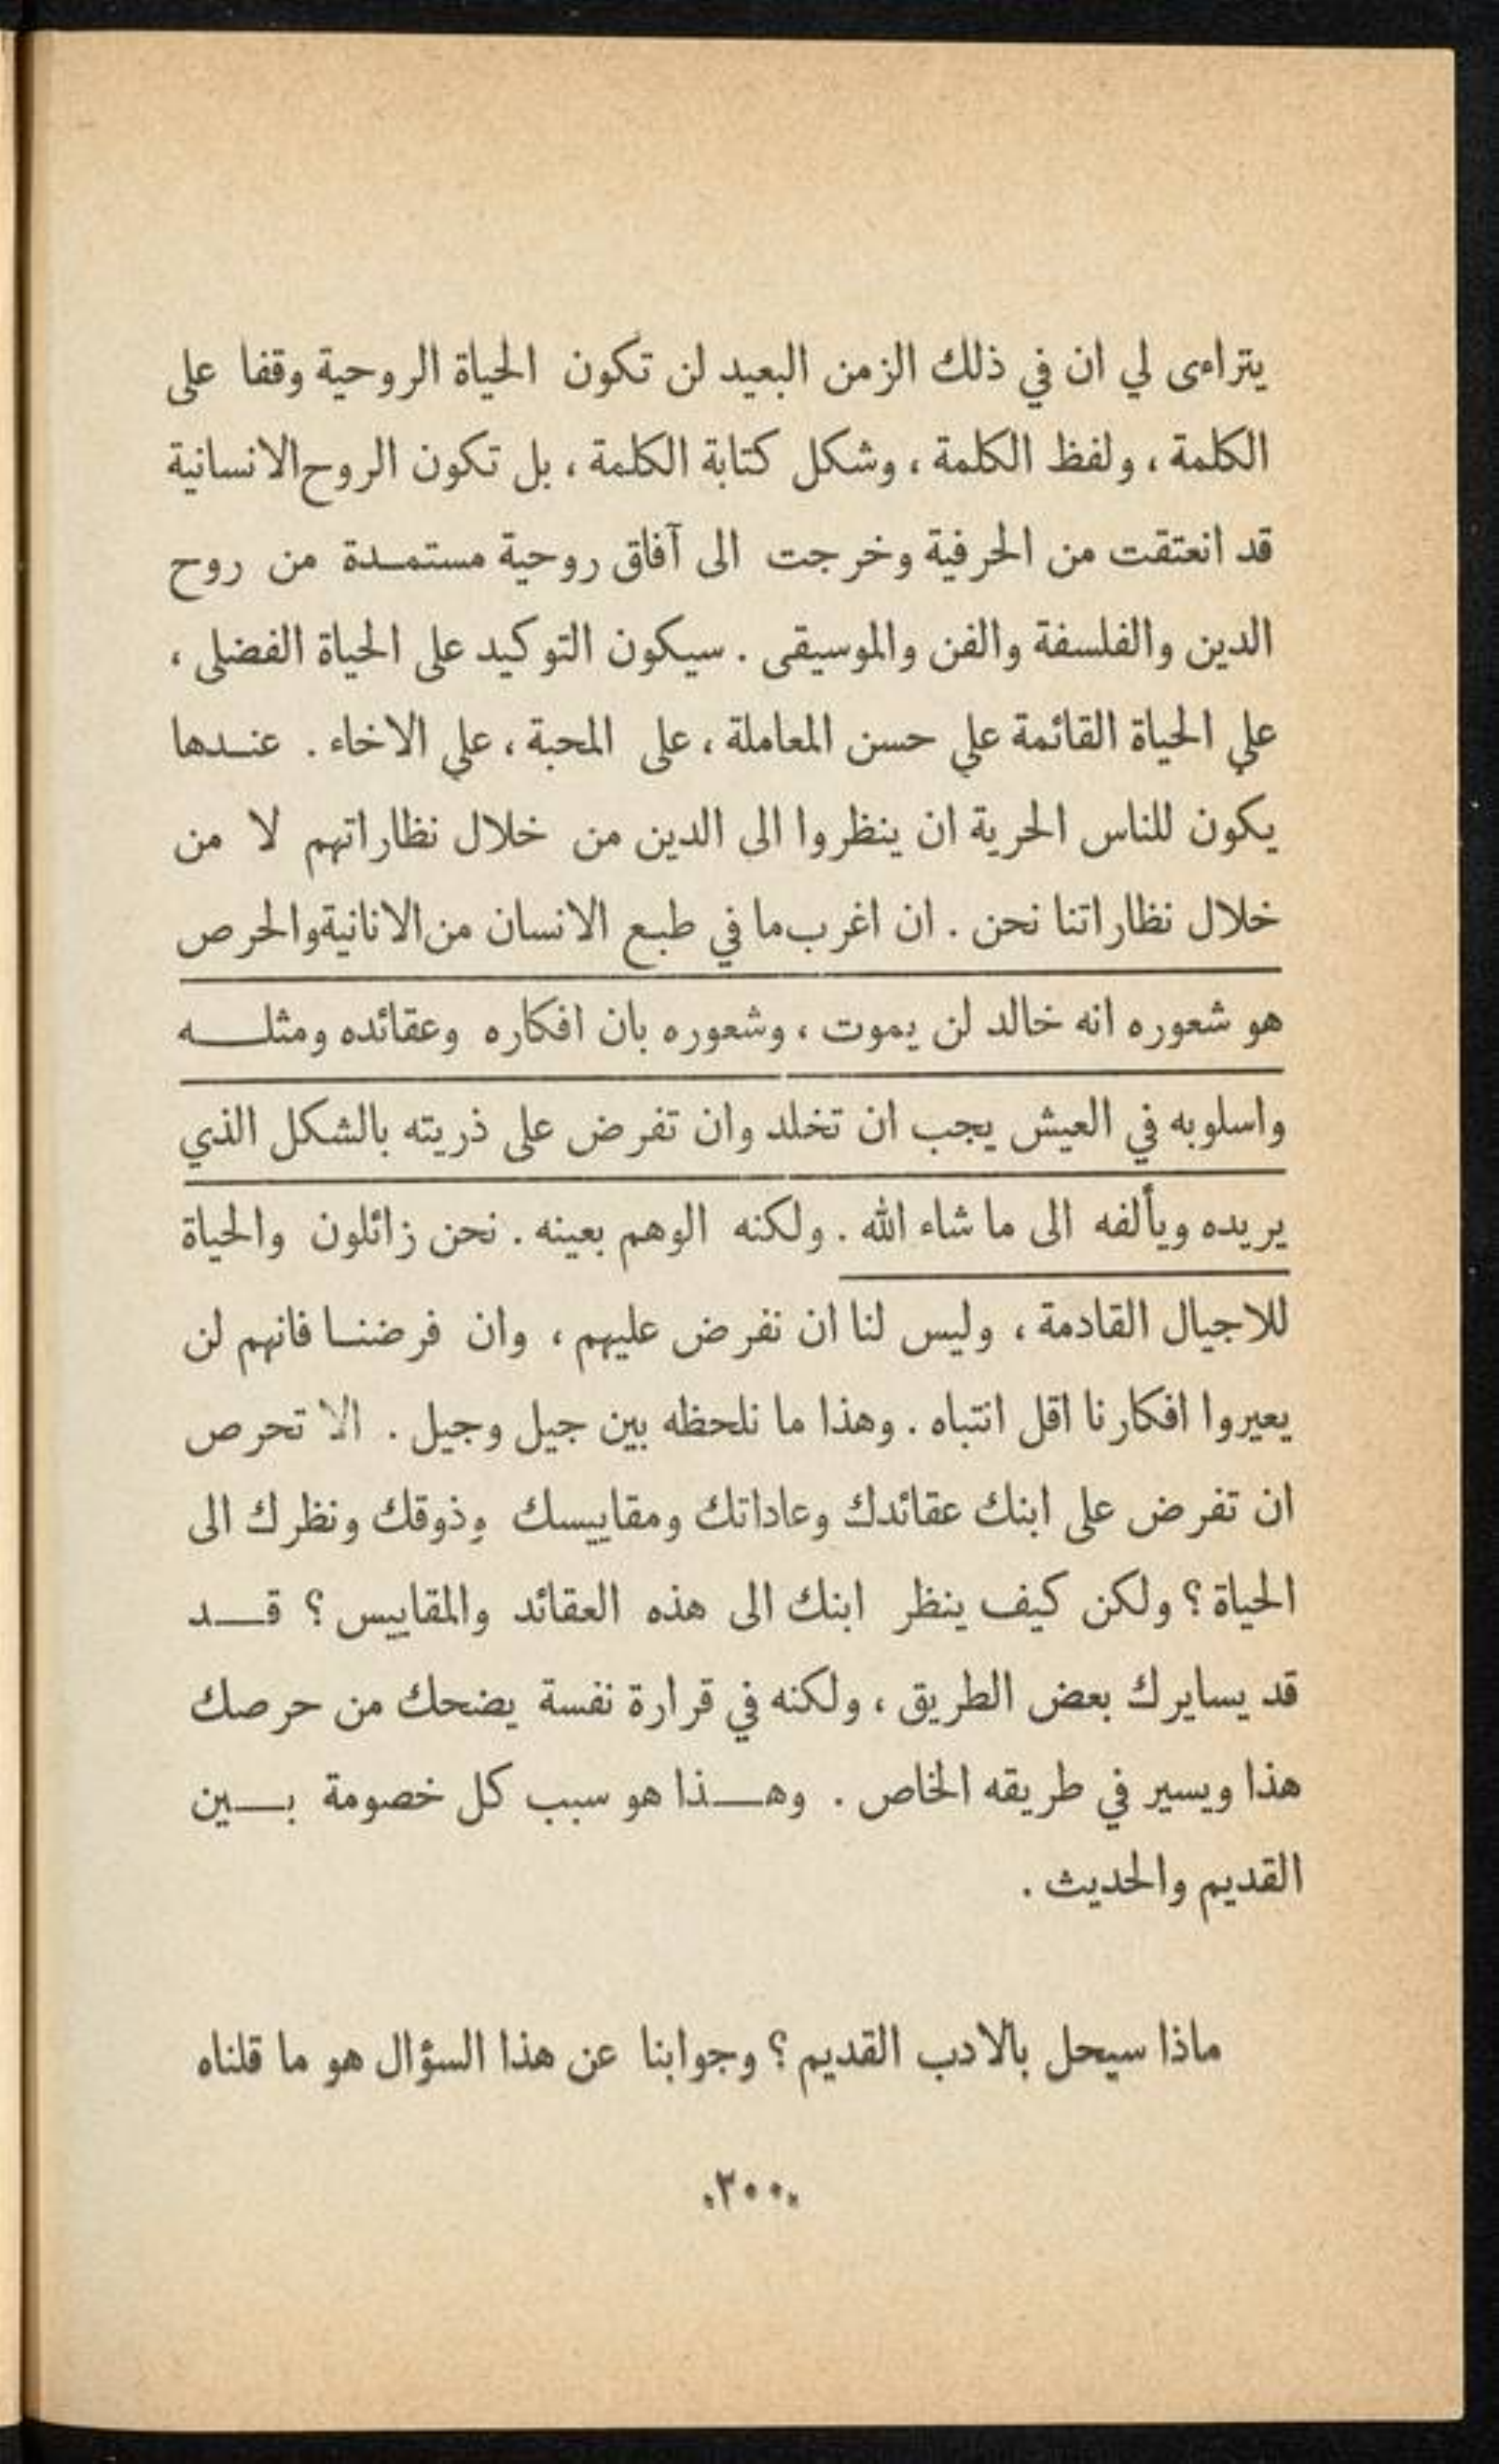 يتراءى لي ان في ذلك الزمن البعيد لن تكون الحياة الروحية وقفا على
الكلمة ، ولفظ الكلمة ، وشكل كتابة الكلمة ، بل تكون الروح الانسانية
قد انعتقت من الحرفية وخرجت الى آفاق روحية مستمدة من روح
الدين والفلسفة والفن والموسيقى . سيكون التوكيد على الحياة الفضلى ،
على الحياة القائمة على حسن المعاملة ، على المحبة ، على الاخاء . عندها
يكون للناس الحرية ان ينظروا الى الدين من خلال نظاراتهم لا من
خلال نظاراتنا نحن . ان اغرب ما في طبع الانسان من الانانية والحرص
هو شعوره انه خالد لن يموت ، وشعوره بان افكاره وعقائده ومثله
واسلوبه في العيش يجب ان تخلد وان تفرض على ذريته بالشكل الذي
يريده ويألفه الى ما شاء الله . ولكنه الوهم بعينه . نحن زائلون والحياة
للاجيال القادمة ، وليس لنا ان نفرض عليهم ، وان فرضنا فانهم لن
يعيروا افكارنا اقل انتباه . وهذا ما نلحظه بين جيل وجيل . الا تحرص
ان تفرض على ابنك عقائدك وعاداتك ومقاييسك وذوقك ونظرك الى
الحياة ؟ ولكن كيف ينظر ابنك الى هذه العقائد والمقاييس ؟ قد
قد يسايرك بعض الطريق ، ولكنه في قرارة نفسة يضحك من حرصك
هذا ويسير في طريقه الخاص . وهذا هو سبب كل خصومة بين
القديم والحديث .
ماذا سيحل بالادب القديم ؟ وجوابنا عن هذا السؤال هو ما قلناه
.٢٠٠.